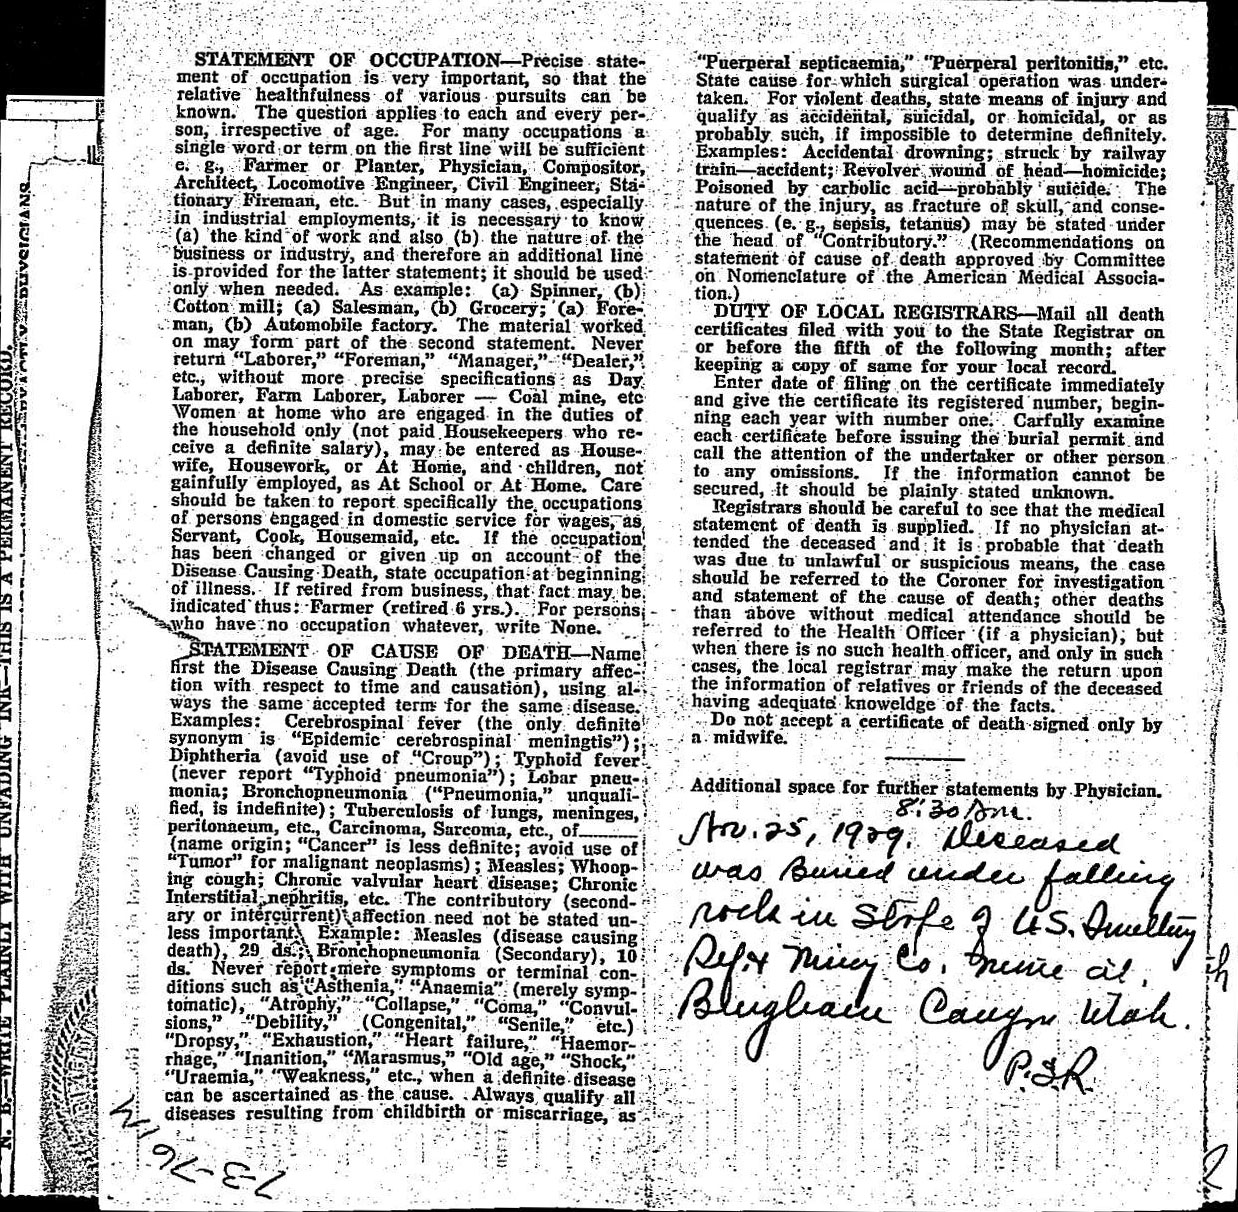 STATEMENT OF OCCUPATION—Precise state-
ment of occupation is very important, so that the
relative healthfulness of various pursuits can be
known. The question applies to each and every per-
son, irrespective of age. For many occupations a
single word or term on the first line will be sufficient
e. g., Farmer or Planter, Physician, Compositor,
Architect, Locomotive Engineer, Civil Engineer, Sta-
tionary Fireman, etc. But in many cases, especially
in industrial employments, it is necessary to know
(a) the kind of work and also (b) the nature of the
business or industry, and therefore an additional line
is provided for the latter statement; it should be used
only when needed. As example: (a) Spinner, (b)
Cotton mill; (a) Salesman, (b) Grocery; (a) Fore-
man, (b) Automobile factory. The material worked
on may form part of the second statement. Never
return "Laborer," "Foreman," "Manager," "Dealer,"
etc., without more precise specifications as Day
Laborer, Farm Laborer, Laborer — Coal mine, etc
Women at home who are engaged in the duties of
the household only (not paid Housekeepers who re-
ceive a definite salary), may be entered as House-
wife, Housework, or At Home, and children, not
gainfully employed, as At School or At Home. Care
should be taken to report specifically the occupations
of persons engaged in domestic service for wages, as
Servant, Cook, Housemaid, etc. If the occupation
has been changed or given up on account of the
Disease Causing Death, state occupation at beginning
of illness. If retired from business, that fact may be
indicated thus: Farmer (retired 6 yrs.). For persons
who have no occupation whatever, write None.
STATEMENT OF CAUSE OF DEATH—Name
first the Disease Causing Death (the primary affec-
tion with respect to time and causation), using al-
ways the same accepted term for the same disease.
Examples: Cerebrospinal fever (the only definite
synonym is "Epidemic cerebrospinal meningtis");
Diphtheria (avoid use of "Croup"); Typhoid fever
(never report "Typhoid pneumonia"); Lobar pneu-
monia; Bronchopneumonia ("Pneumonia," unquali-
fied, is indefinite); Tuberculosis of lungs, meninges,
peritonaeum, etc., Carcinoma, Sarcoma, etc., of
(name origin; "Cancer" is less definite; avoid use of
"Tumor" for malignant neoplasms); Measles; Whoop-
ing cough; Chronic valvular heart disease; Chronic
Interstitial nephritis, etc. The contributory (second-
ary or intercurrent) affection need not be stated un-
less important. Example: Measles (disease causing
death), 29 ds.; Bronchopneumonia (Secondary), 10
ds. Never report mere symptoms or terminal con-
ditions such as "Asthenia," "Anaemia" (merely symp-
tomatic), "Atrophy," "Collapse," "Coma," "Convul-
sions," "Debility," (Congenital," "Senile," etc.)
"Dropsy," "Exhaustion," "Heart failure," "Haemor-
rhage," "Inanition," "Marasmus," "Old age," "Shock,"
"Uraemia," "Weakness," etc., when a definite disease
can be ascertained as the cause. Always qualify all
diseases resulting from childbirth or miscarriage, as
"Puerperal septicaemia," "Puerperal peritonitis," etc.
State cause for which surgical operation was under-
taken. For violent deaths, state means of injury and
qualify as accidental, suicidal, or homicidal, or as
probably such, if impossible to determine definitely.
Examples: Accidental drowning; struck by railway
train—accident; Revolver wound of head—homicide;
Poisoned by carbolic acid—probably suicide. The
nature of the injury, as fracture of skull, and conse-
quences (e. g., sepsis, tetanus) may be stated under
the head of "Contributory." (Recommendations on
statement of cause of death approved by Committee
on Nomenclature of the American Medical Associa-
tion.)
DUTY OF LOCAL REGISTRARS—Mail all death
certificates filed with you to the State Registrar on
or before the fifth of the following month; after
keeping a copy of same for your local record.
Enter date of filing on the certificate immediately
and give the certificate its registered number, begin-
ning each year with number one. Carfully examine
each certificate before issuing the burial permit and
call the attention of the undertaker or other person
to any omissions. If the information cannot be
secured, it should be plainly stated unknown.
Registrars should be careful to see that the medical
statement of death is supplied. If no physician at-
tended the deceased and it is probable that death
was due to unlawful or suspicious means, the case
should be referred to the Coroner for investigation
and statement of the cause of death; other deaths
than above without medical attendance should be
referred to the Health Officer (if a physician), but
when there is no such health officer, and only in such
cases, the local registrar may make the return upon
the information of relatives or friends of the deceased
having adequate knoweldge of the facts.
Do not accept a certificate of death signed only by
a midwife.
Additional space for further statements by Physician.
8:30 Am.
Nov. 25, 1929. Deceased
was Buried under falling
rock in Stope of U.S. Smelting
Ref. & Mining Co. mine at
Bingham Canyon Utah.
P.S.R.
7-3-76
N. B.—WRITE PLAINLY WITH UNFADING INK—THIS IS A PERMANENT RECORD.
EXACTLY PHYSICIANS